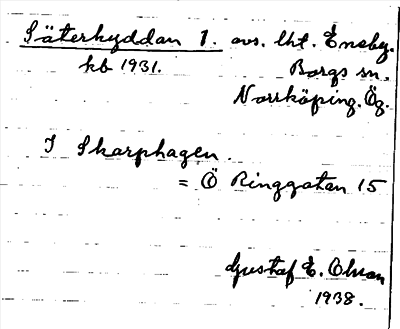 Säterhyddan 1. avs. lht. Eneby.
kb 1931. Borgs sn.
Norrköping. Ög.
I Skarphagen.
= Ö Ringgatan 15
Gustaf E. Olson
1938.